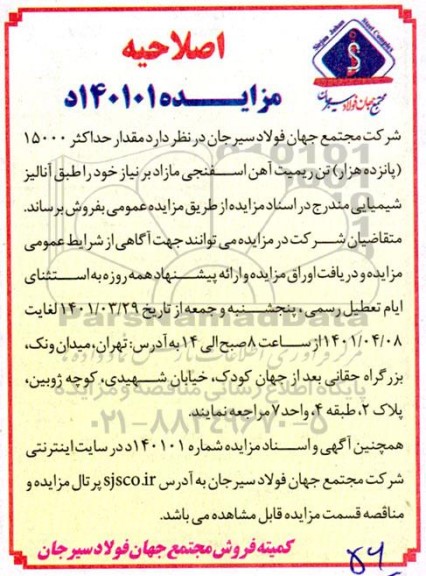 Sirjan Jahan Steel Complex
مجتمع جهان فولاد سیرجان
اصلاحیه
مزایـــده ۱۴۰۱۰۱د
شرکت مجتمع جهان فولاد سیرجان در نظر دارد مقدار حداکثر ۱۵۰۰۰
(پانزده هزار) تن ریمیت آهن اسفنجی مازاد بر نیاز خود را طبق آنالیز
شیمیایی مندرج در اسناد مزایده از طریق مزایده عمومی بفروش برساند.
متقاضیان شرکت در مزایده می توانند جهت آگاهی از شرایط عمومی
مزایده و دریافت اوراق مزایده و ارائه پیشنهاد همه روزه به استثنای
ایام تعطیل رسمی، پنجشنبه و جمعه از تاریخ ۱۴۰۱/۰۳/۲۹ لغایت
۱۴۰۱/۰۴/۰۸ از ساعت ۸ صبح الی ۱۴ به آدرس: تهران، میدان ونک،
بزرگراه حقانی بعد از جهان کودک، خیابان شهیدی، کوچه ژوبین،
پلاک ۲، طبقه ۴، واحد ۷ مراجعه نمایند.
همچنین آگهی و اسناد مزایده شماره ۱۴۰۱۰۱د در سایت اینترنتی
شرکت مجتمع جهان فولاد سیرجان به آدرس sjsco.ir پرتال مزایده و
مناقصه قسمت مزایده قابل مشاهده می باشد.
کمیته فروش مجتمع جهان فولاد سیرجان
ParsNamadData
پایگاه اطلاع رسانی مناقصه و مزایده
۰۲۱-۸۸۳۴۹۶۷۰-۵